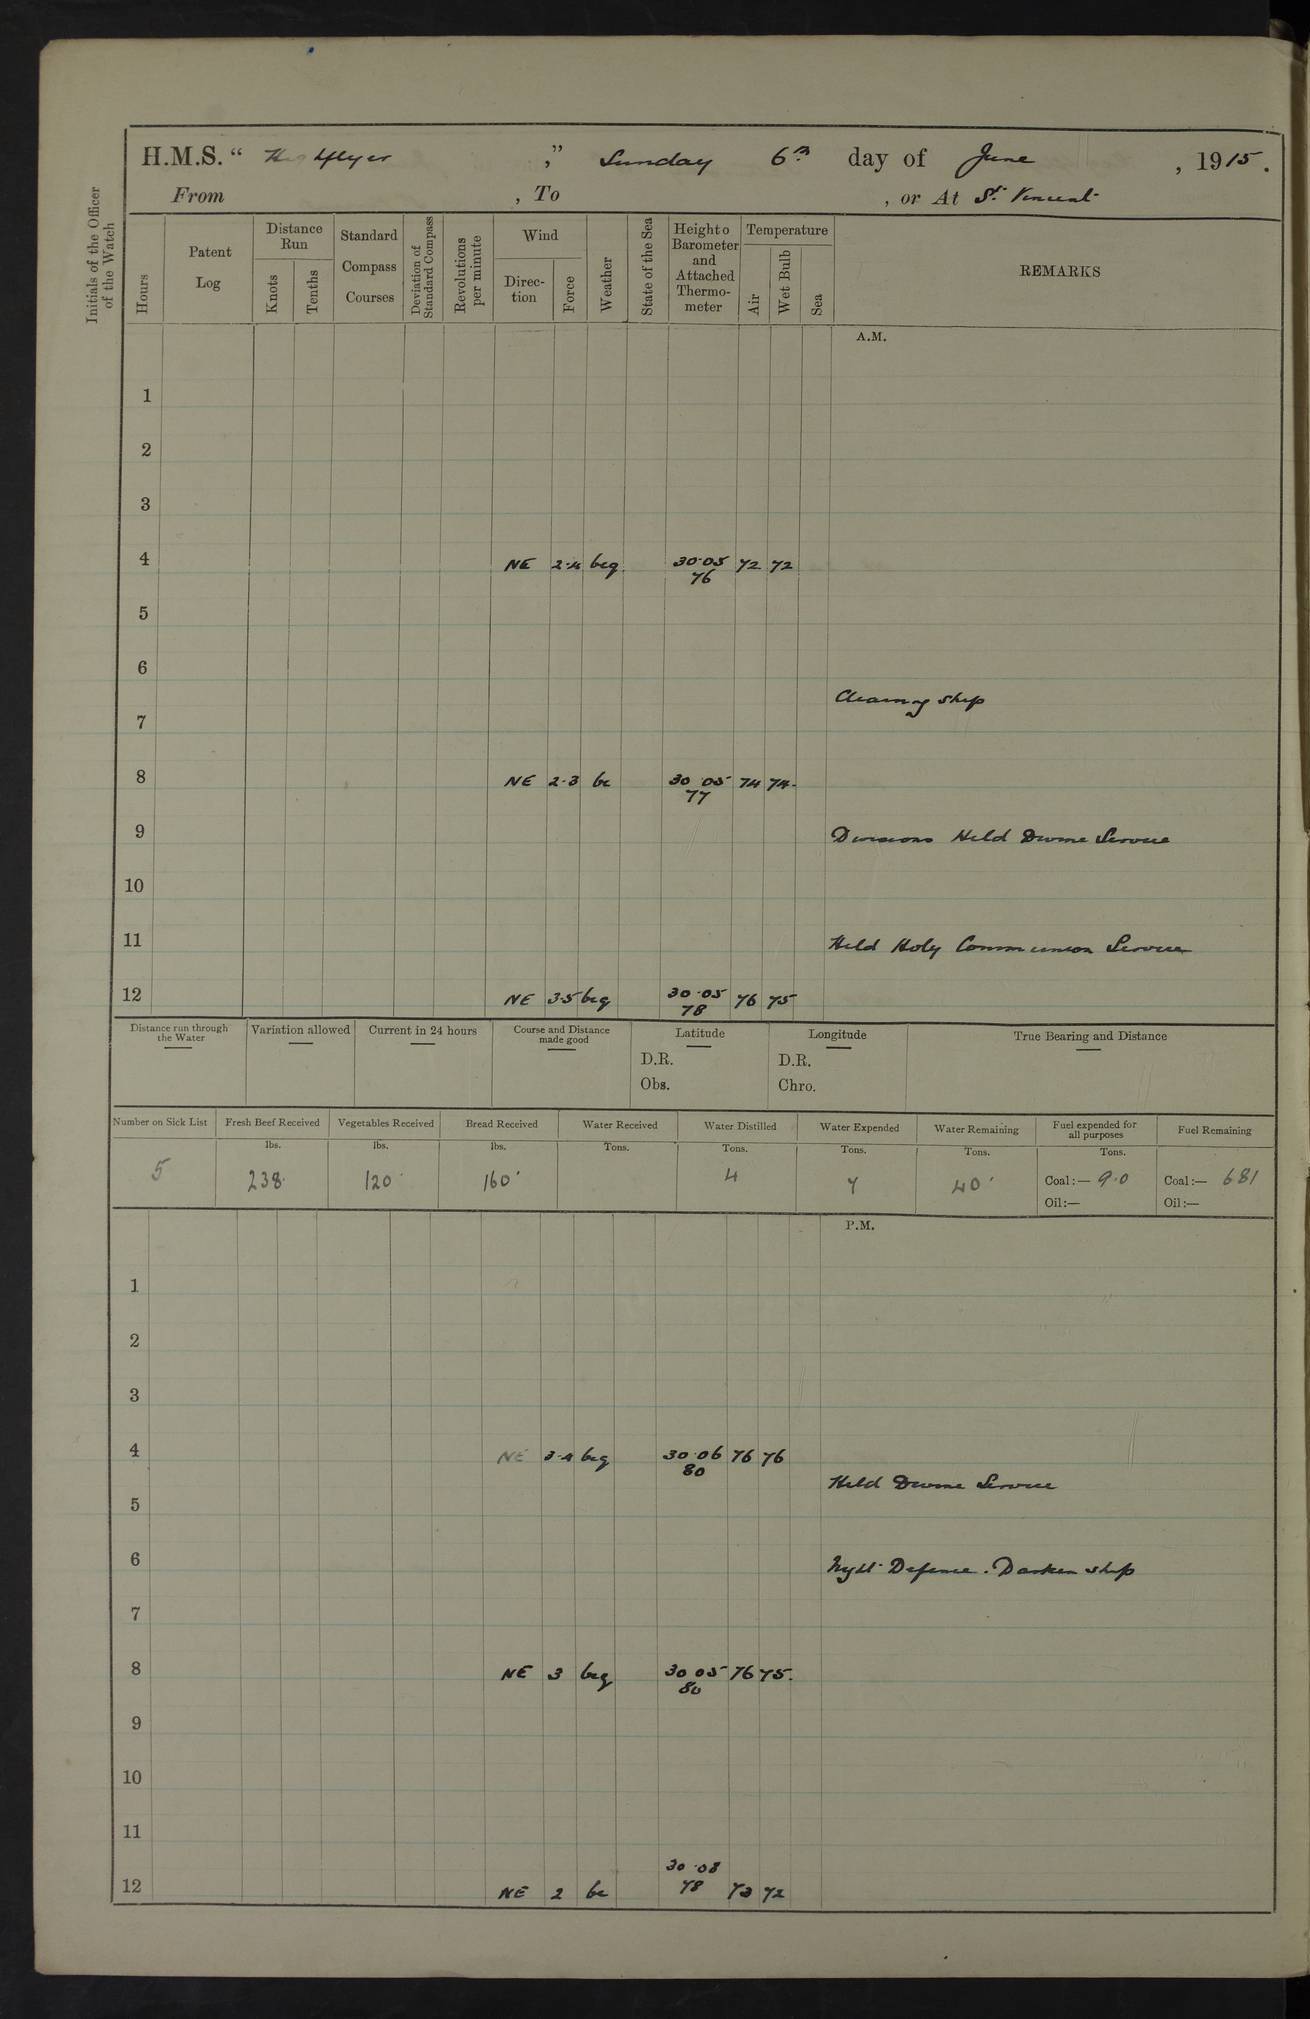 H.M.S. “ Highflyer ,” Sunday 6th day of June , 1915.
From , To , or At St. Vincent
Initials of the Officer of the Watch
Hours Patent Log Distance Run Knots Tenths Standard Compass Courses Deviation of Standard Compass Revolutions per minute Wind Direc-tion Force Weather State of the Sea Height o Barometer and Attached Thermo-meter Temperature Air Wet Bulb Sea REMARKS
A.M.
1
2
3
4 NE 2·4 bcq 30·05 72 72
76
5
6
Cleaning ship
7
8 NE 2·3 bc 30 05 74 74
77
9 Divisions Held Divine Service
10
11 Held Holy Communion Service
12 NE 3·5 bcq 30·05 76 75
78
Distance run through the Water Variation allowed Current in 24 hours Course and Distance made good Latitude Longitude True Bearing and Distance
D.R. D.R.
Obs. Chro.
Number on Sick List Fresh Beef Received Vegetables Received Bread Received Water Received Water Distilled Water Expended Water Remaining Fuel expended for all purposes Fuel Remaining
lbs. lbs. lbs. Tons. Tons. Tons. Tons. Tons.
5 238 120 160 4 7 40 Coal:— 9·0 Coal:— 681
Oil:— Oil:—
P.M.
1
2
3
4 NE 3·4 bcq 30·06 76 76
80
Held Divine Service
5
6 Night Defence. Darken ship
7
8 NE 3 bcq 30 05 76 75.
80
9
10
11
30·08
12 NE 2 bc 78 73 72